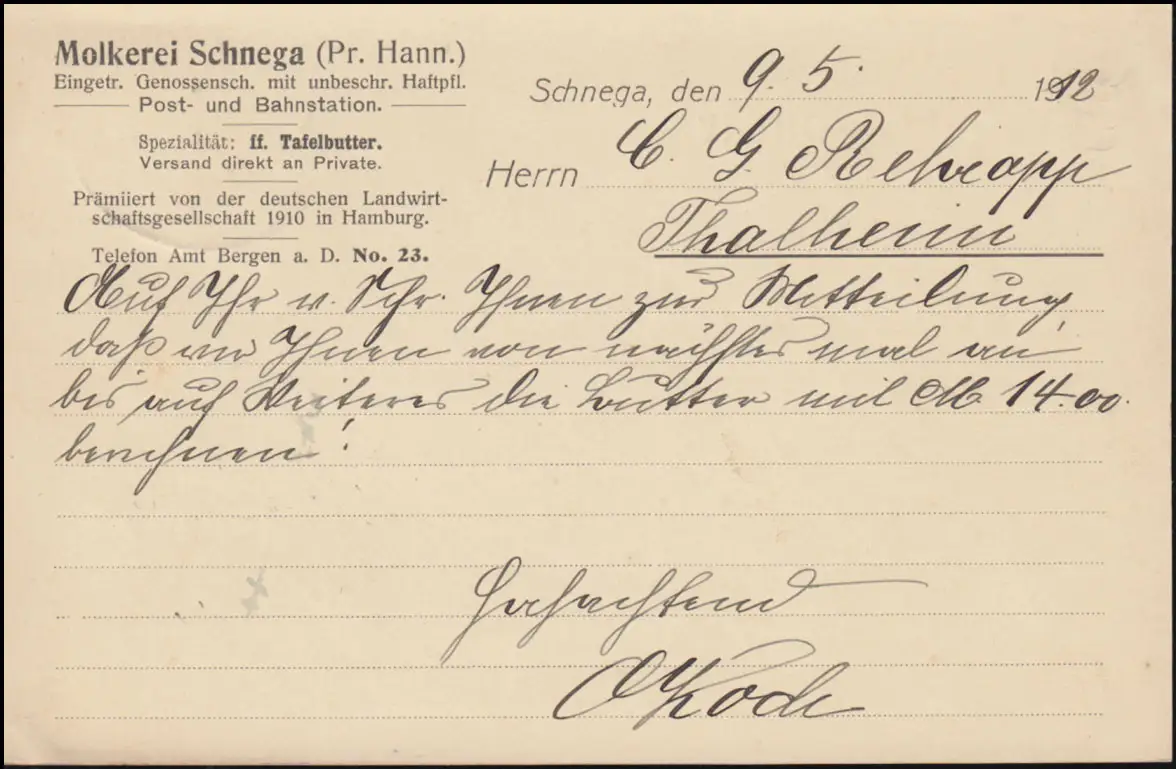 Molkerei Schnega (Pr. Hann.)
Eingetr. Genossensch. mit unbeschr. Haftpfl.
Post- und Bahnstation.
Spezialität: ff. Tafelbutter.
Versand direkt an Private.
Prämiiert von der deutschen Landwirt-
schaftsgesellschaft 1910 in Hamburg.
Telefon Amt Bergen a. D. No. 23.
Schnega, den 9. 5. 1912
Herrn C. G.
Thalheim
Auf Ihr w. Schr. Ihnen zur Mitteilung,
daß wir Ihnen von nächstes mal an
bis auf Weiteres die Butter mit M. 14.00.
berechnen!
Hochachtend